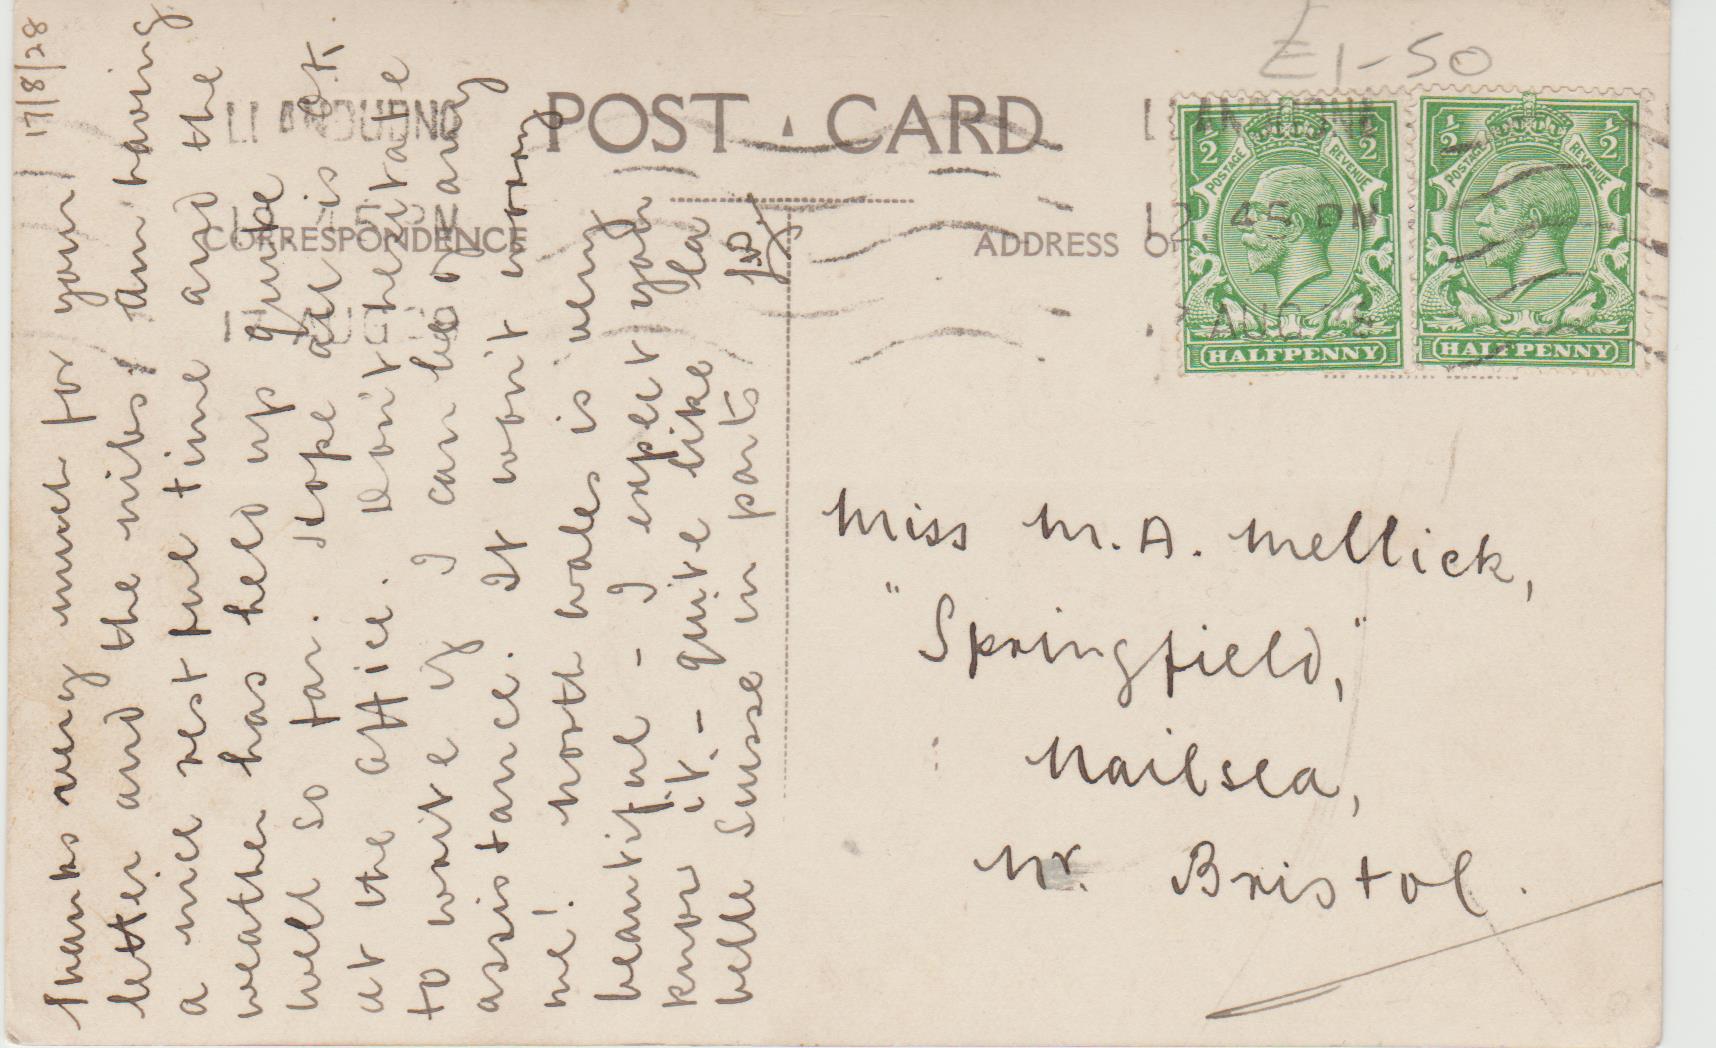 £1-50
POST CARD
CORRESPONDENCE
ADDRESS
LLANDUDNO
2.45 PM
AUG 28
LLANDUDNO
45 PM
AUG
1/2 1/2
POSTAGE REVENUE
HALFPENNY
1/2 1/2
POSTAGE REVENUE
HALFPENNY
17/8/28
Thanks very much for your
letter and the nibs, Am having
a nice restful time and the
weather has held up quite
well so far. Hope all is
at the office. Don't hesitate
to write if I can be of any
assistance. It won't worry
me! North Wales is very
beautiful - I expect you
know it. - quite like la
belle Suisse in parts
Miss M. A. Mellick,
"Springfield,"
Nailsea,
Nr. Bristol.